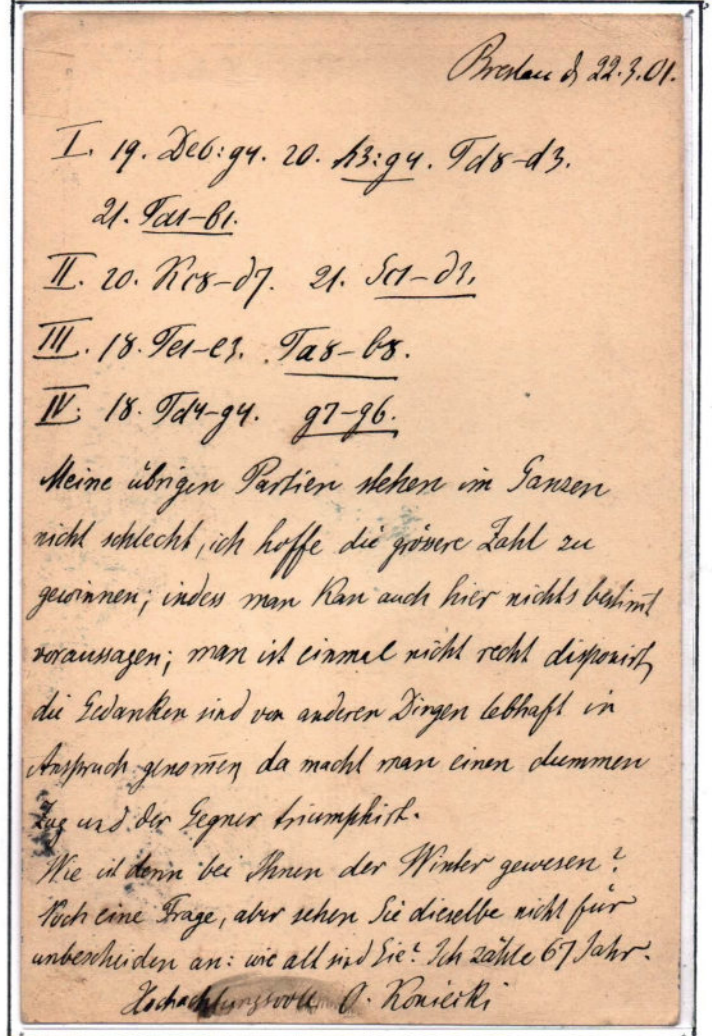 Breslau d 22.3.01.
I. 19. De6:g4. 20. h3:g4. Td8-d3.
21. Ta1-b1.
II. 20. Kc8-d7. 21. Sc1-d3.
III. 18. Te1-e3. Ta8-b8.
IV. 18. Td4-g4. g7-g6.
Meine übrigen Partien stehen im Ganzen
nicht schlecht, ich hoffe die grössere Zahl zu
gewinnen; indess man kan̄ auch hier nichts bestim̄t
voraussagen; man ist einmal nicht recht disponirt,
die Gedanken sind von anderen Dingen lebhaft in
Anspruch genom̄en, da macht man einen dummen
Zug und der Gegner triumphirt.
Wie ist denn bei Ihnen der Winter gewesen?
Noch eine Frage, aber sehen Sie dieselbe nicht für
unbescheiden an: wie alt sind Sie? Ich zähle 67 Jahr.
Hochachtungsvoll O. Koniecki